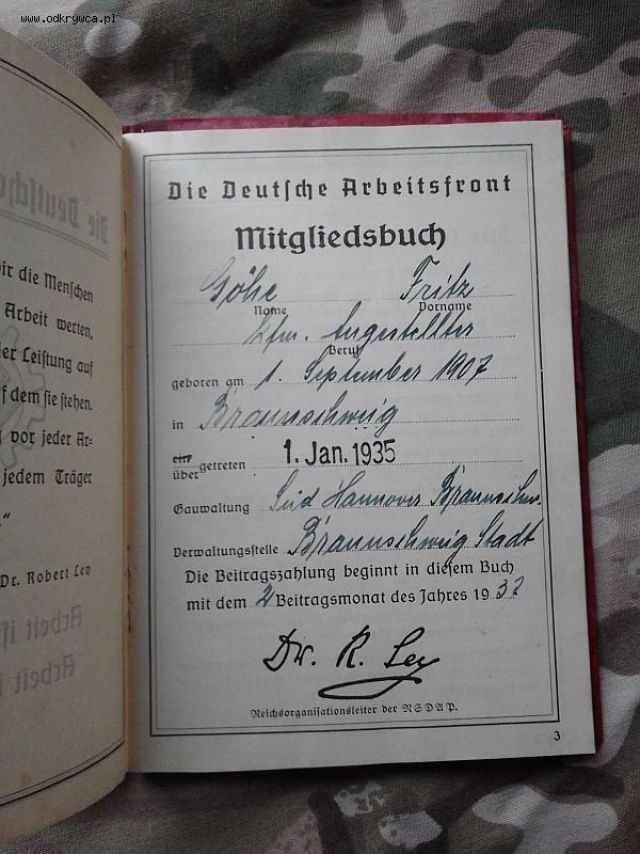 www.odkrywca.pl
Die Deutsche
wir die Menschen
Arbeit werten,
der Leistung auf
f dem sie stehen.
vor jeder Ar-
jedem Träger
"
Dr. Robert Ley
Arbeit
Arbeit
Die Deutsche Arbeitsfront
Mitgliedsbuch
Göhe Fritz
Name Vorname
kfm. Angestellter
Beruf
geboren am 1. September 1907
in Braunschweig
ein
über getreten 1. Jan. 1935
Gauwaltung Süd Hannover Braunschw.
Verwaltungsstelle Braunschweig Stadt
Die Beitragszahlung beginnt in diesem Buch
mit dem 2 Beitragsmonat des Jahres 1937
Dr. R. Ley
Reichsorganisationsleiter der NSDAP.
3